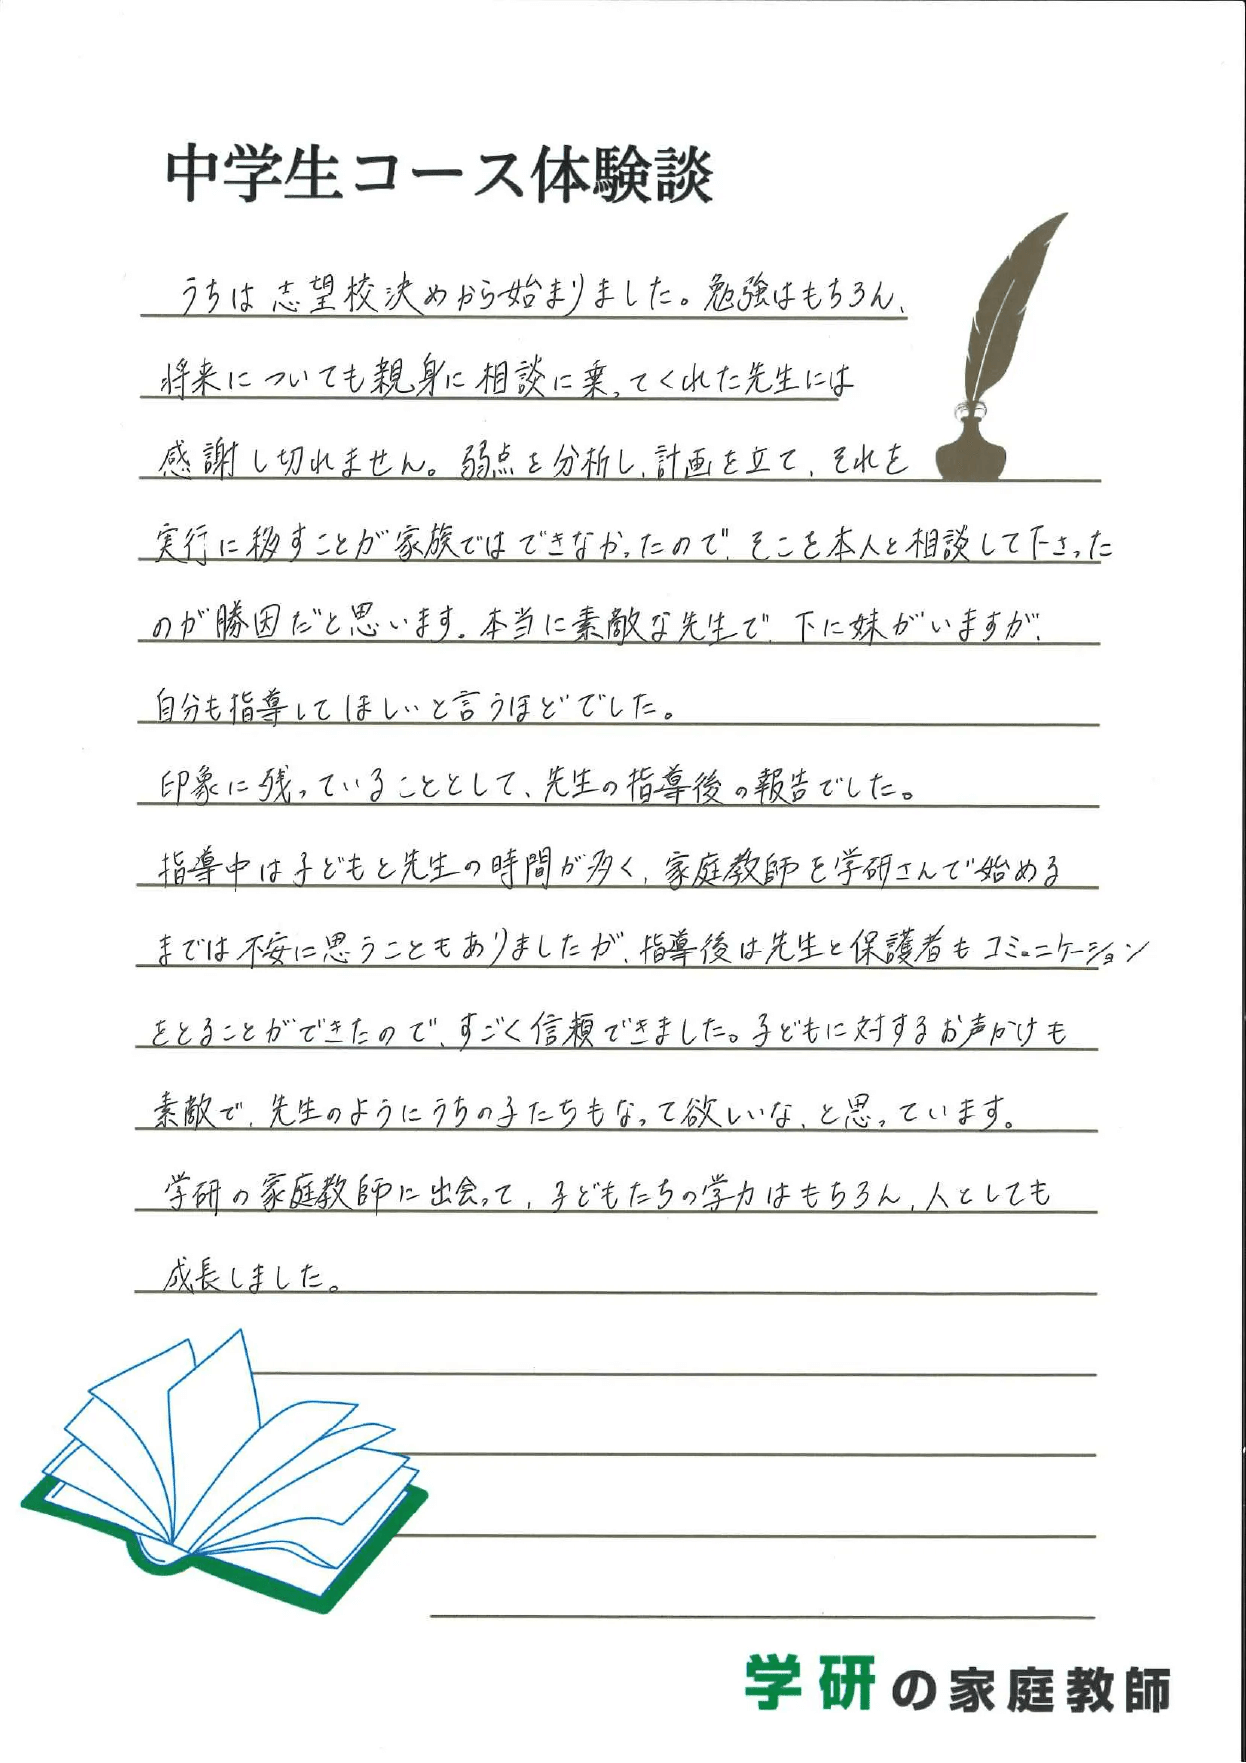 中学生コース体験談
うちは志望校決めから始まりました。勉強はもちろん、
将来についても親身に相談に乗ってくれた先生には
感謝し切れません。弱点を分析し、計画を立て、それを
実行に移すことが家族ではできなかったので、そこを本人と相談して下さった
のが勝因だと思います。本当に素敵な先生で、下に妹がいますが、
自分も指導してほしいと言うほどでした。
印象に残っていることとして、先生の指導後の報告でした。
指導中は子どもと先生の時間が多く、家庭教師を学研さんで始める
までは不安に思うこともありましたが、指導後は先生と保護者もコミュニケーション
をとることができたので、すごく信頼できました。子どもに対するお声かけも
素敵で、先生のようにうちの子たちもなって欲しいな、と思っています。
学研の家庭教師に出会って、子どもたちの学力はもちろん、人としても
成長しました。
学研の家庭教師